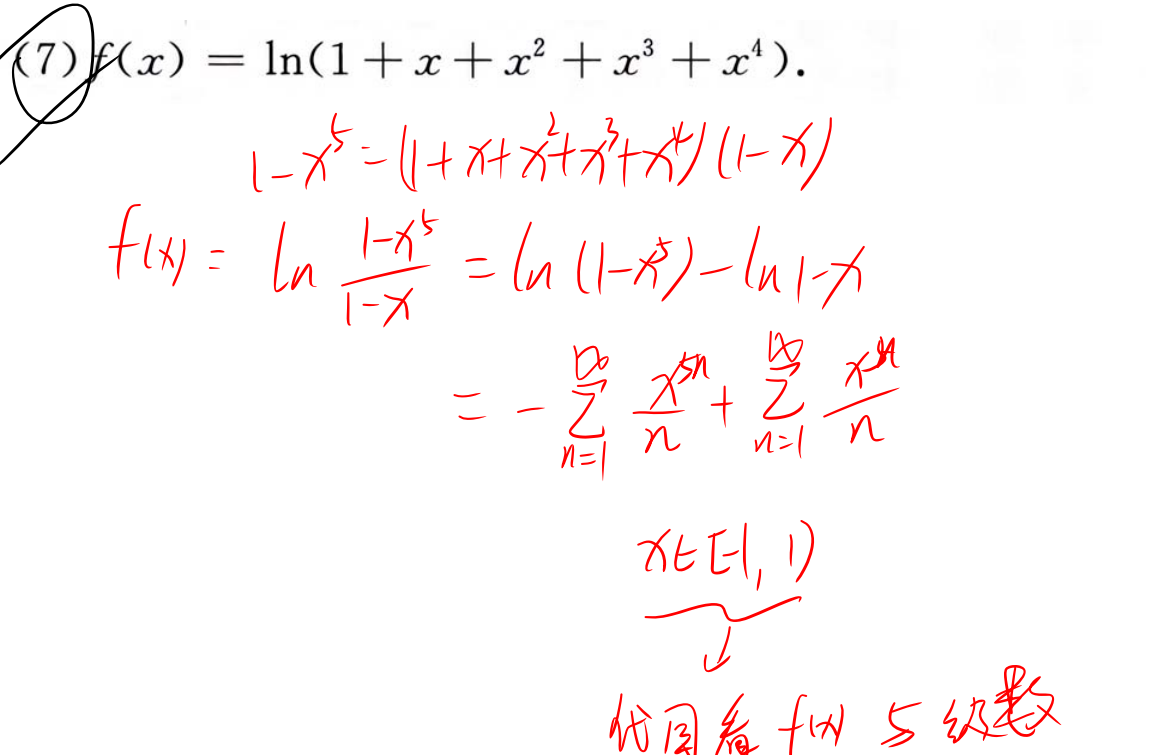 (7) f(x) = ln(1 + x + x² + x³ + x⁴).
1-x⁵=(1+x+x²+x³+x⁴)(1-x)
f(x) = ln (1-x⁵)/(1-x) = ln(1-x⁵)-ln 1-x
= - ∑_{n=1}^{∞} x^{5n}/n + ∑_{n=1}^{∞} x^n/n
x∈[-1, 1)
代回看 f(x) 与级数